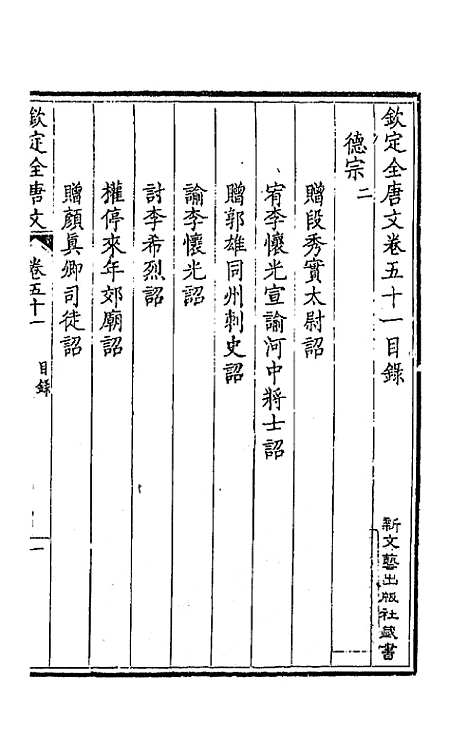 欽定全唐文卷五十一目錄
新文藝出版社藏書
德宗二
贈段秀實太尉詔
宥李懷光宣諭河中將士詔
贈郭雄同州刺史詔
諭李懷光詔
討李希烈詔
權停來年郊廟詔
贈顏真卿司徒詔
欽定全唐文 卷五十一 目錄 一